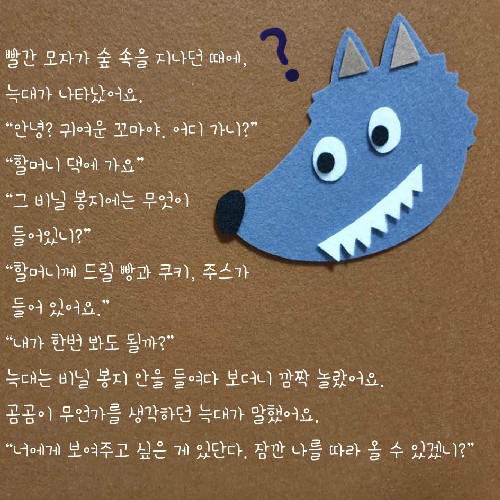 빨간 모자가 숲 속을 지나던 때에,
늑대가 나타났어요.
“안녕? 귀여운 꼬마야. 어디 가니?”
“할머니 댁에 가요”
“그 비닐 봉지에는 무엇이
들어있니?”
“할머니께 드릴 빵과 쿠키, 주스가
들어 있어요.”
“내가 한번 봐도 될까?”
늑대는 비닐 봉지 안을 들여다 보더니 깜짝 놀랐어요.
곰곰이 무언가를 생각하던 늑대가 말했어요.
“너에게 보여주고 싶은 게 있단다. 잠깐 나를 따라 올 수 있겠니?”
?